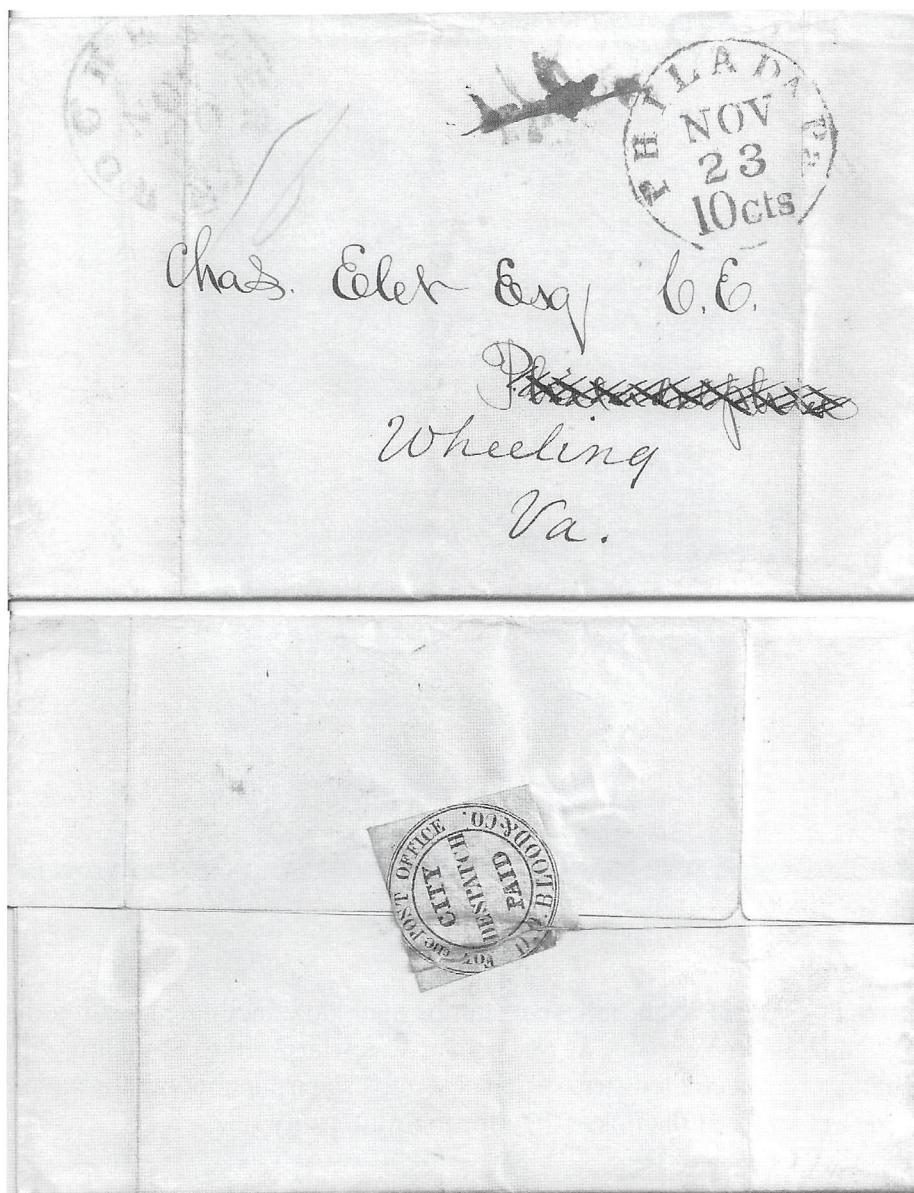 PHILADA. Pa.
NOV
23
10cts
Chas. Ellet Esq C.E.
Wheeling
Va.
D.O. BLOOD & CO.
For the POST OFFICE
CITY
DESPATCH
PAID